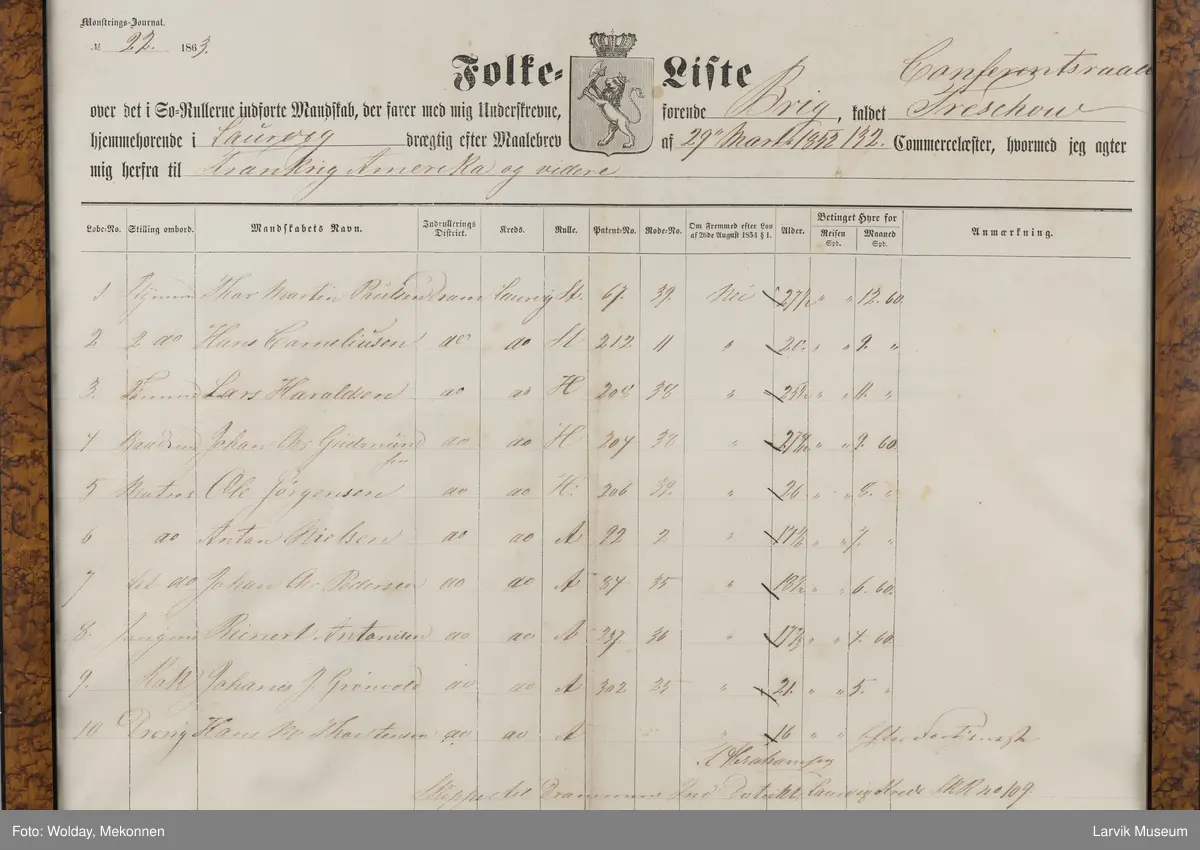 Monstrings-Journal.
№ 22. 1863.
Folke-Liste
Conferentsraad
over det i Sø-Rullerne indførte Mandskab, der farer med mig Underskrevne, førende Brig, kaldet Treschow
hjemmehørende i Laurvig drægtig efter Maalebrev af 29' Marts 1852 132. Commercelæster, hvormed jeg agter
mig herfra til Frankrig Amerika og videre
Løbe-No. Stilling ombord. Mandskabets Navn. Indrullerings District. Kreds. Rulle. Patent-No. Node-No. Om Fremmed efter Lov af 26de August 1854 § 1. Alder. Betinget Hyre for Reisen Spd. Maaned Spd. Anmærkning.
1 Thor Martin Paulsen Dram Laurvig St. 67. 39. Nei 27½ " " 12. 60.
2 2 do Hans Corneliusen do do St 212 11 " 20. " " 9. "
3. Lars Haraldsen do do H 208 38 " " " 11. "
4 Johan Chr Gudmund sen do do H 207 38 " 27½ " " 9. 60
5 Matros Ole Jørgensen do do H. 206 32. " 26 " " 8. "
6 do Anton Nielsen do do A 92 2 " 17½ " " 7. "
7 Let do Johan Chr Pedersen do do A 34 35 " 18½ " " 6. 60.
8. Jungm Reinert Antonisen do do A 237 36 " 17½ " " 4. 60
9. Kok Johanes J. Grønvold do do A 302 25 " 21. " " 5. "
10 Dreng Hans Thorstensen do do A " " " 16 " " Efter Fortieneste
A Abrahamsen
Skipper til Drammens Ind Distrikt Laurvig Kreds SKR no 109
Foto: Wolday, Mekonnen
Larvik Museum